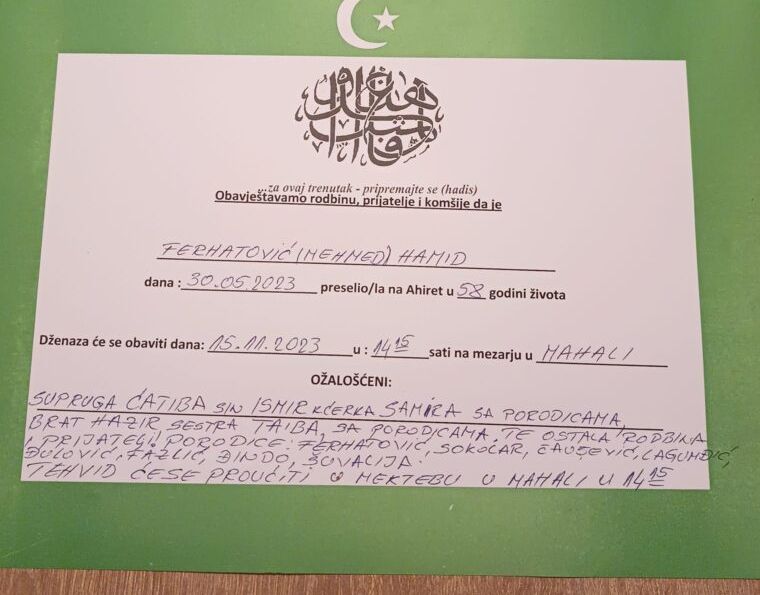 ...za ovaj trenutak - pripremajte se (hadis)
Obavještavamo rodbinu, prijatelje i komšije da je
FERHATOVIĆ (MEHMED) HAMID
dana : 30.05.2023 preselio/la na Ahiret u 58 godini života
Dženaza će se obaviti dana: 15.11.2023 u : 14 15 sati na mezarju u MAHALI
OŽALOŠĆENI:
SUPRUGA ĆATIBA SIN ISMIR KĆERKA SAMIRA SA PORODICAMA,
BRAT HAZIR SESTRA TAIBA, SA PORODICAMA, TE OSTALA RODBINA
I PRIJATELJI PORODICE: FERHATOVIĆ, SOKOLAR, ČAUŠEVIĆ, LAGUMDŽIĆ,
ĐULOVIĆ, FAZLIĆ, ZINDO, ŠUVALIJA.
TEHVID ĆE SE PROUČITI U MEKTEBU U MAHALI U 14 15